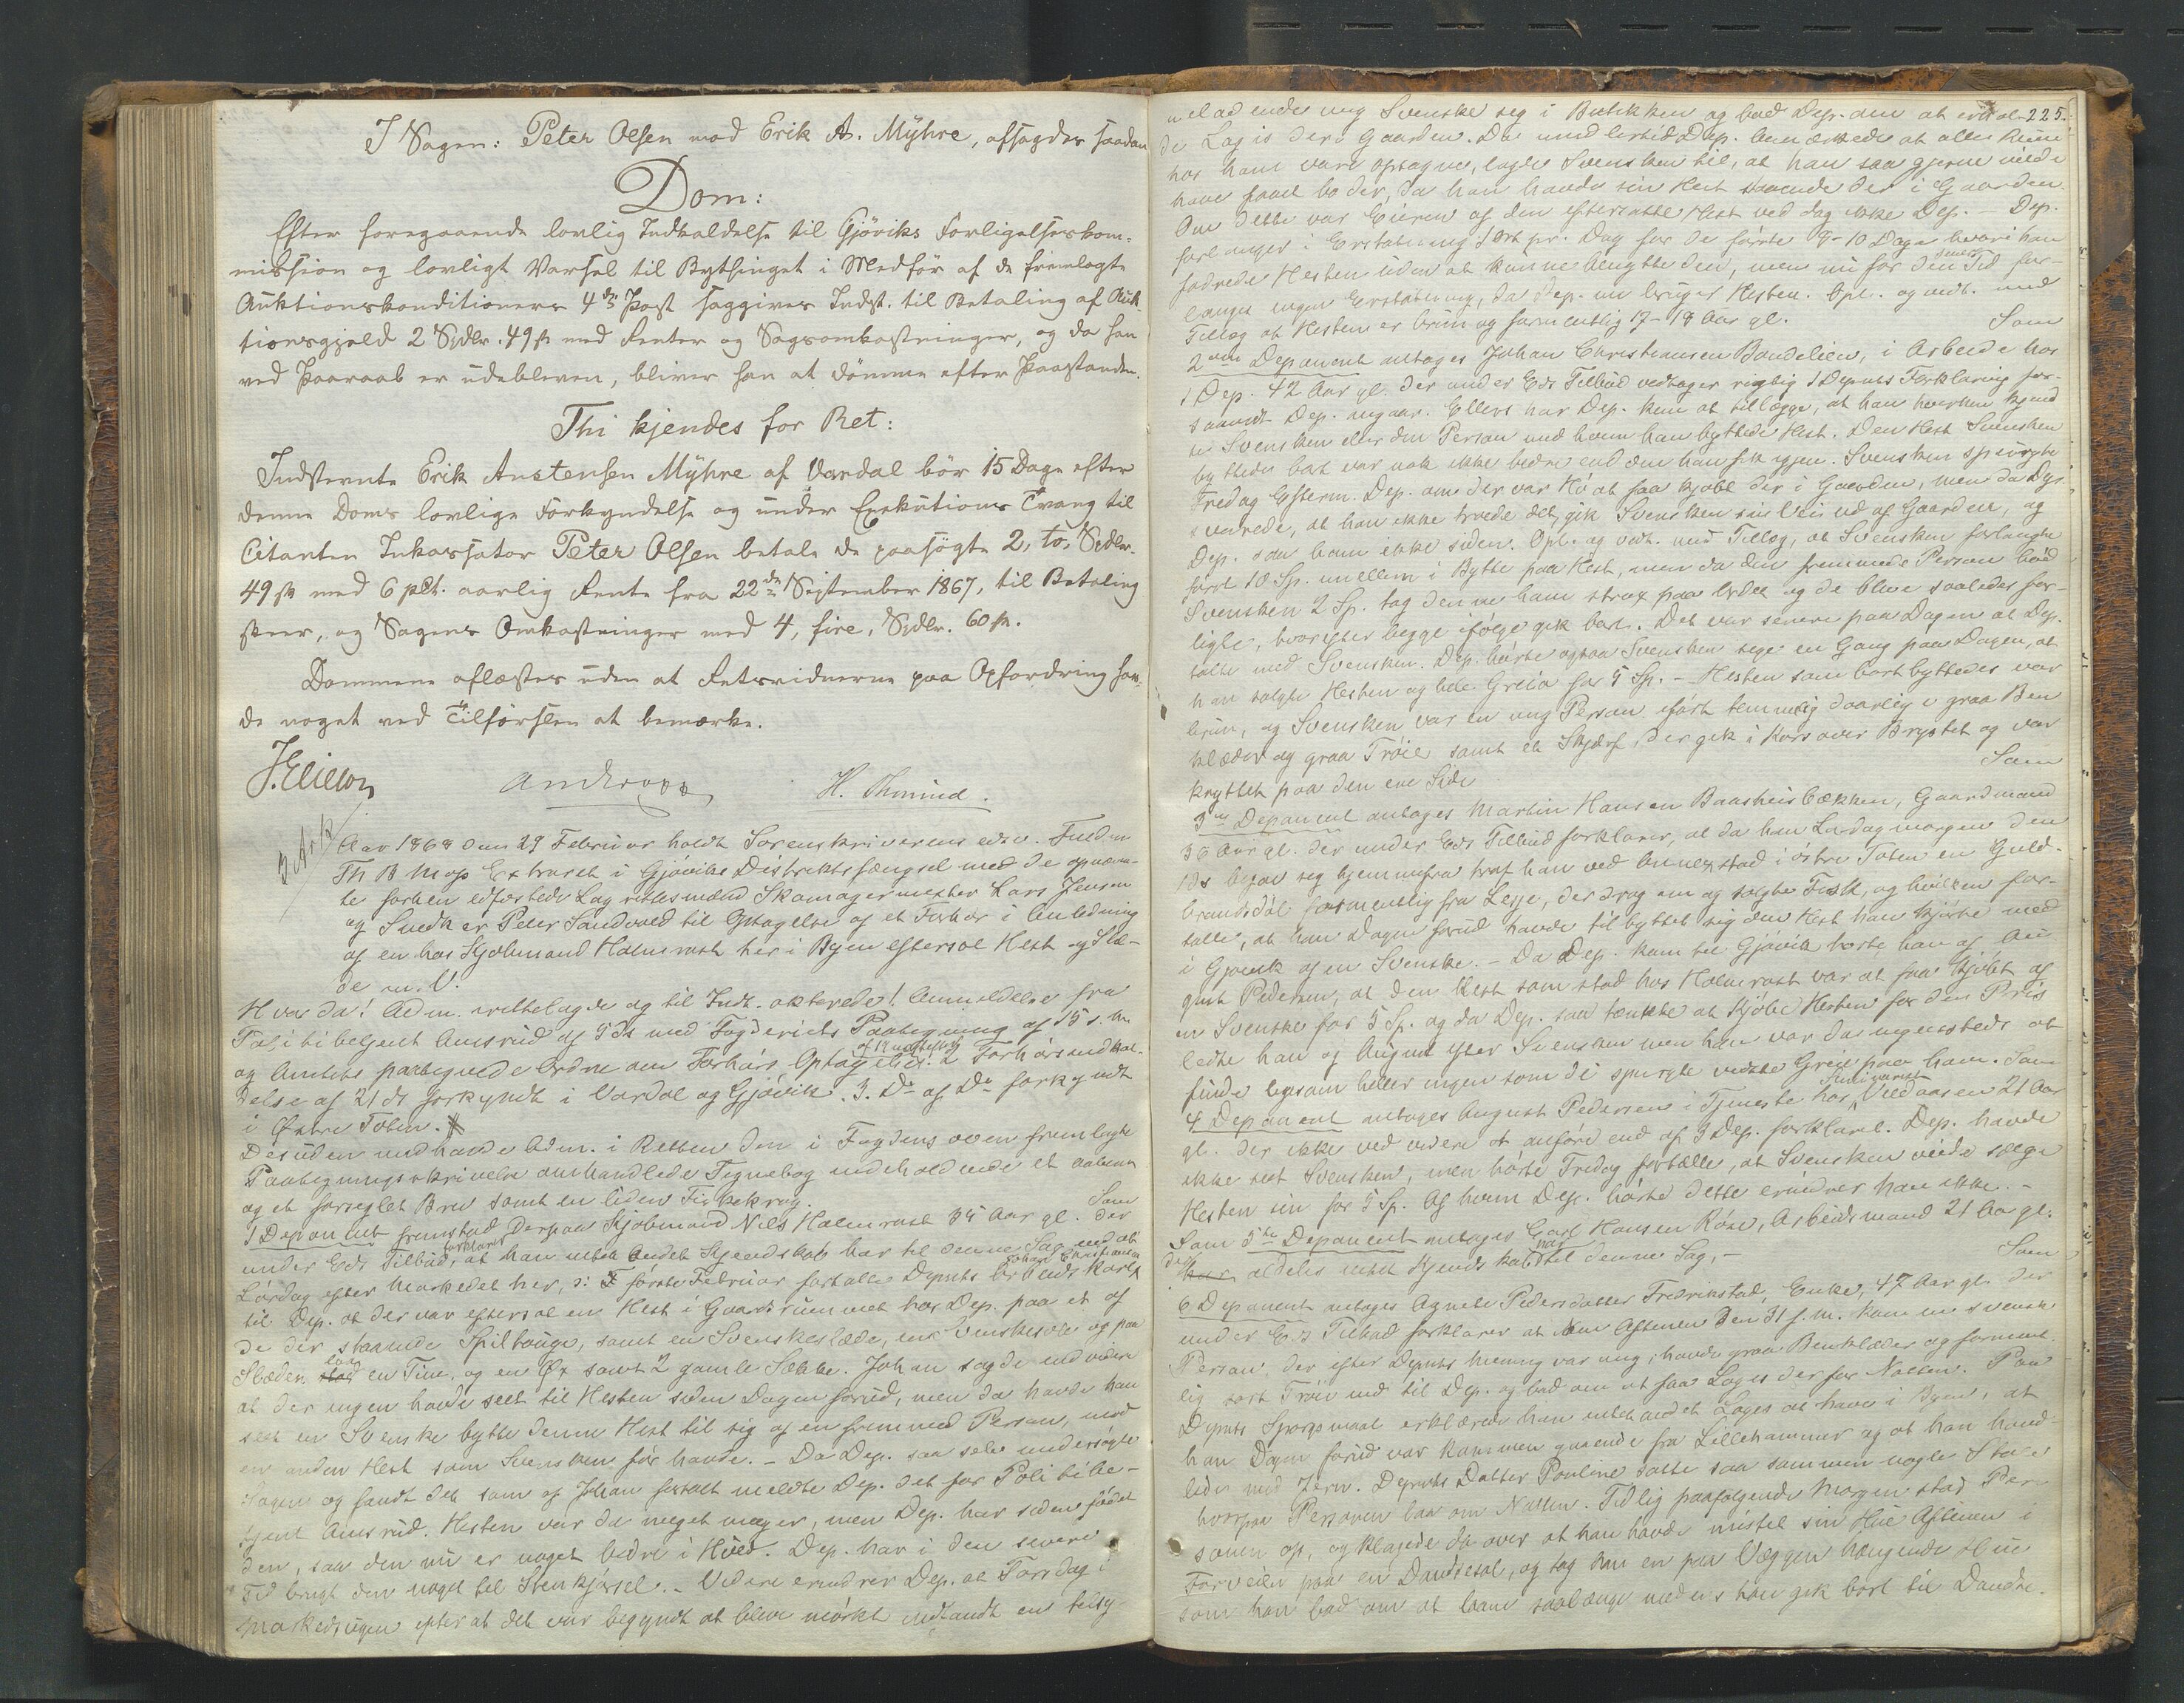 I Sagen: Peter Olsen mod Erik A. Myhre, afsagdes saadan
Dom:
Efter foregaaende lovlig Indkaldelse til Gjöviks Forligelseskom-
mission og lovligt Varsel til Bythinget i Medför af de fremlagte
Auktionskonditioners 4de Post saggives Indst. til Betaling af Auk-
tionsgjæld 2 Spdlr. 49 ß med Renter og Sagsomkostninger, og da han
ved Paaraab er udebleven, bliver han at dömme efter Paastanden.
Thi kjendes for Ret:
Indstevnte Erik Anstensen Myhre af Vardal bör 15 Dage efter
denne Doms lovlige Forkyndelse og under Exekutions Tvang til
Citanten Inkassator Peter Olsen betale de paasögte 2, to, Spdlr.
49 ß med 6 pCt. aarlig Rente fra 22de September 1867, til Betaling
skeer, og Sagens Omkostninger med 4, fire, Spdlr. 60 ß.
Dommen oplæstes uden at Retsvidnerne paa Opfordring hav-
de noget ved Tilförslen at bemærke.
H. Thmind.
3 Ark
Aar 1868 den 29 Februar holdt Sorenskriverens edsv. Fuldm.
Th B Mo Extraret i Gjöviks Distriktsfængsel med de opnævn-
te forhen edfæstede Lagrettesmænd Skomagermester Lars Jensen
og Snedker Peter Sandvold til Optagelse af et Forhör i Anledning
af en hos Kjöbmand Holmrast her i Byen eftersat Hest og Slæ-
de m. V.
Hvorda! Adm. rettelagde og til Indt. akterede! Anmeldelse fra
Politibetjent Amsrud af 5 ds med Fogderiets Paategning af 15 s. M.
og Amtets paategnede Ordre om Forhörs Optagelse af 19 næstefter. 2 Forhörsindkal-
delse af 21 ds forkyndt i Vardal og Gjövik. 3. Do af Do forkyndt
i Östre Toten.
Desuden medhavde Adm. i Retten den i Fogdens oven fremlagte
Paategningsskrivelse omhandlede Tegnebog indeholdende et aabent
og et forseglet Brev samt en liden Fiskekrog. Som
1 Deponent fremstod derpaa Kjöbmand Nils Holmrast 35 Aar gl. der
under Eds Tilbud forklarer, at han intet Andet Kjendskab har til denne Sag end at
Lördag efter Markedet her, ɔ: 1 förste Februar fortalte Depnts Arbeidskarl Johan Christiansen
til Dep. at der var eftersat en Hest i Gaardsrummet hos Dep. paa et af
de der staaende Spiltouge, samt en Svenskeslæde, en Svenskesele og paa
Slæden laa en Tine, og en Öx samt 2 gamle Sække. Johan sagde endvidere
at der ingen havde seet til Hesten siden Dagen forud, men da havde han
seet en Svenske bytte denne Hest til sig af en fremmed Person, mod
en anden Hest som Svensken för havde. – Da Dep. saa selv undersögte
Sagen og fandt det som af Johan fortalt meldte Dep. det for Politibe-
tjent Amsrud. Hesten var da meget mager, men Dep. har siden födet
den, saa den nu er noget bedre i Huld. Dep. har i den senere
Tid brugt den noget til Stenkjörsel. – Videre erindrer Dep. at Torsdag i
Markedsugen efter at det var begyndt at blive mörkt indfandt en
225.
ung Svenske sig i Butikken og bad Dep. om at
de Logis der i Gaarden. Da imidlertid Dep. bemærkede at alle Rum
hos ham vare optagne, lagde Svensken til, at han saa gjerne vilde
have faaet bo der, da han havde sin Hest staaende der i Gaarden.
Om dette var Eieren af den eftersatte Hest ved dog ikke Dep. – Dep.
forlanger i Erstatning 1 Ort pr. Dag for de förste 9-10 Dage hvori han
fodrede Hesten uden at kunne benytte den, men nu for den senere Tid for-
langes ingen Erstatning, da Dep. nu bruger Hesten. Opl. og vedt. med
Tillæg at Hesten er brun og formentlig 17-18 Aar gl. Som
2den Deponent antages Johan Christiansen Bondelien, i Arbeide hos
1 Dep. 42 Aar gl. der under Eds Tilbud vedtager rigtig 1 Depnts Forklaring for-
saavidt Dep. angaar. Ellers har Dep. kun at tillægge, at han hverken kjend
te Svensken eller den Person med hvem han byttede Hest. Den Hest Svensken
byttede bort var nok ikke bedre end den han fik igjen. Svensken spurgte
Fredag Efterm. Dep. om der var Hö at faa kjöbt der i Gaarden, men da Dep.
svarede, at han ikke troede det, gik Svensken sin Vei ud af Gaarden, og
Dep. saa ham ikke siden. Opl. og vedt. med Tillæg, at Svensken forlangte
först 10 Sp. imellem i Bytte paa Hest, men da den fremmede Person böd
Svensken 2 Sp. tog denne ham strax paa Ordet og de bleve saaledes for-
ligte, hvorefter begge i Fölge gik bort. Det var senere paa Dagen at Dep.
talte med Svensken. Dep. hörte ogsaa Svensken sige en Gang paa Dagen, at
han solgte Hesten og hele Greia for 5 Sp. – Hesten som bortbyttedes var
brun, og Svensken var en ung Person, iført temmelig daarlig graa Ben
klæder og graa Tröie samt et Skjærf, der gik i Kors over Brystet og var
knyttet paa den ene Side. Som
3die Deponent antages Martin Hansen Baasheisbækken, Gaardmand
36 Aar gl. der under Eds Tilbud forklarer, at da han Lördag morgen den
1ds begav sig hjemmefra traf han ved stad i östre Toten en Guld-
brandsdöl formentlig fra Lesje, der drog om og solgte Fisk, og hvilken for-
talte, at han Dagen forud havde tilbyttet sig den Hest han kjörte med
i Gjövik af en Svenske. – Da Dep. kom til Gjövik hörte han af Au-
gust Pedersen, at den Hest som stod hos Holmrast var at faa kjöbt af
en Svenske for 5 Sp. og da Dep. saa tænkte at kjöbe Hesten for den Pris
ledte han og August efter Svensken men han var da ingensteds at
finde ligesom heller ingen som de spurgte vidste Greie paa ham. Som
4 Deponent antages August Pedersen i Tjeneste hos Veldaasen 21 Aar
gl. der ikke ved videre at anföre end af 3 Dep. forklaret. Dep. havde
ikke seet Svensken, men hörte Fredag fortælle, at Svensken vilde sælge
Hesten sin for 5 Sp. Af hvem Dep. hörte dette erindrer han ikke. –
Som 5te Deponent antages Carl Hansen Röse, Arbeidsmand 21 Aar gl.
der aldeles intet Kjendskab har til denne Sag, – Som
6 Deponent antages Agnete Pedersdatter Fredrikstad, Enke, 47 Aar gl. der
under Eds Tilbud forklarer at om Aftenen den 31 f. M. kom en svensk
Person, der efter Depnts Mening var ung, havde graa Benklæder og forment
lig sort Tröie ind til Dep. og bad om at faa Logis der for Natten. Paa
Depnts Spörgsmaal erklærede han intet andet Logis at have i Byen, at
han Dagen forud var kommen gaaende fra Lillehammer og at han hand-
lede med Jern. Depnts Datter Pouline satte saa sammen nogle Stole
hvorpaa Personen laa om Natten. Tidlig paafölgende Morgen stod Per-
sonen op, og klagede da over at han havde mistet sin Hue Aftenen i
Forveien paa en Dandsesal, og tog han en paa Væggen hængende Hue
som han bad om at laane saalænge medens han gik bort til Dandse-